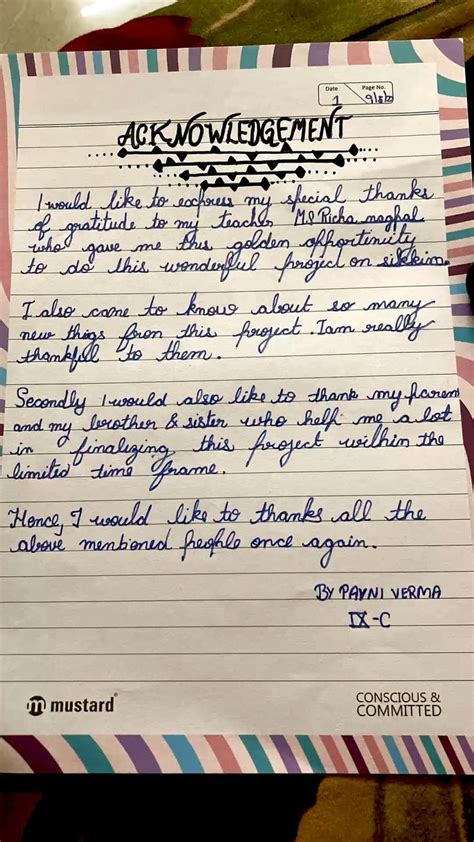 Date Page No.
1 9/5/2
ACKNOWLEDGEMENT
I would like to express my special thanks
of gratitude to my teacher MS Richa nagpal
who gave me this golden opportinuity
to do this wonderful project on sikkim.
I also came to know about so many
new thigs fron this project. I am really
thankful to them.
Secondly I would also like to thank my paren
and my brother & sister who help me a lot
in finalizing this project within the
limited time frame.
Hence, I would like to thanks all the
above mentioned people once again.
BY PAVNI VERMA
IX-C
mustard
CONSCIOUS &
COMMITTED